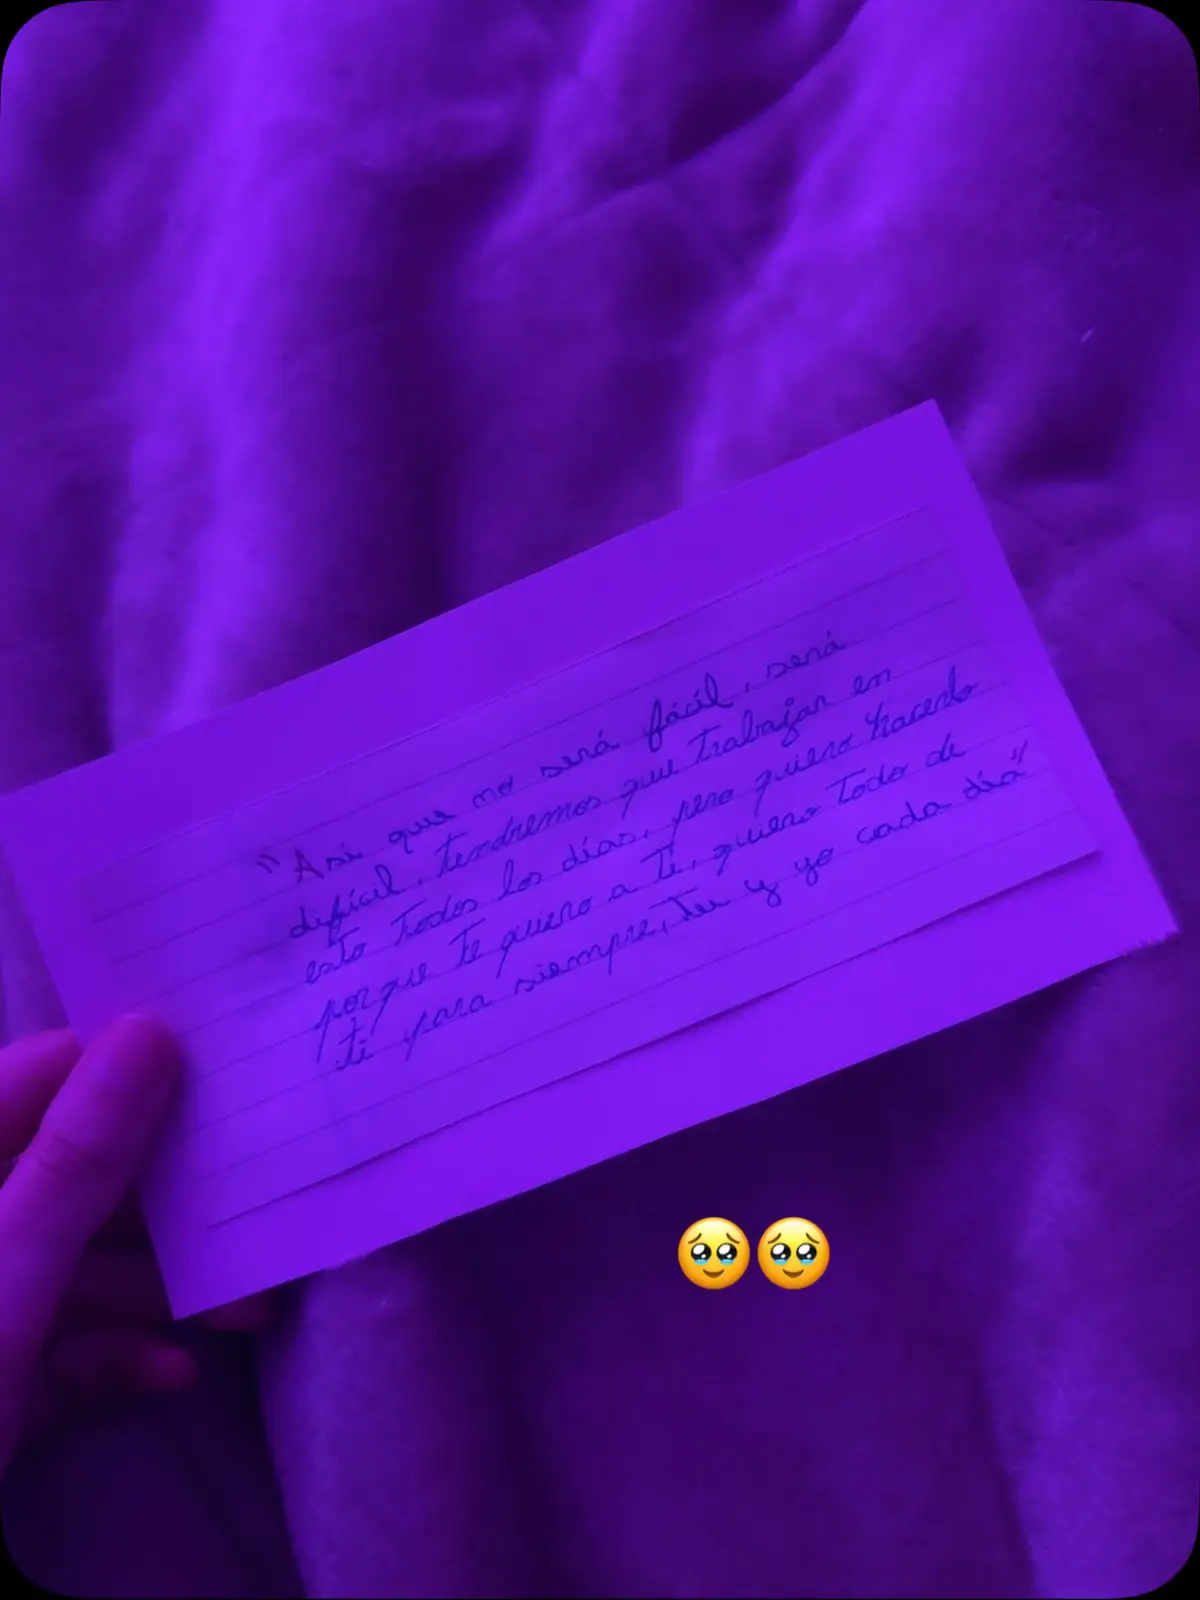 "Asi que no será fácil, será
difícil, tendremos que trabajar en
esto todos los días, pero quiero hacerlo
porque te quiero a ti, quiero todo de
ti para siempre, tu y yo cada día"